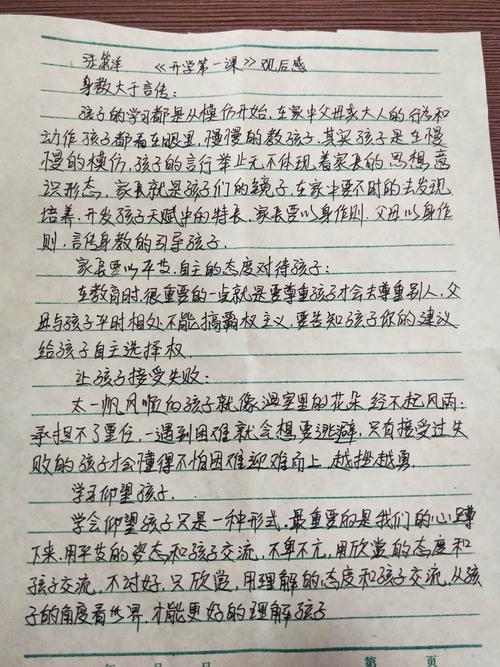 张箫洋 《开学第一课》观后感
身教大于言传:
孩子的学习都是从模仿开始,在家中父母亲大人的行为和
动作,孩子都看在眼里,慢慢的教孩子,其实孩子是在慢
慢的模仿,孩子的言行举止无不体现着家长的思想,意
识形态,家长就是孩子们的镜子,在家中要不时的去发现,
培养,开发孩子天赋中的特长,家长要以身作则.父母以身作
则,言传身教的引导孩子.
家长要以平等.自主的态度对待孩子:
在教育时,很重要的一点就是要尊重孩子才会去尊重别人,父
母与孩子平时相处不能搞霸权主义,要告知孩子你的建议
给孩子自主选择权.
让孩子接受失败:
太一帆风顺的孩子就像温室里的花朵经不起风雨;
承担不了重任,一遇到困难就会想要逃避,只有接受过失
败的孩子才会懂得不怕困难迎难而上,越挫越勇.
学习仰望孩子.
学会仰望孩子只是一种形式.最重要的是我们的心蹲
下来.用平等的姿态和孩子交流,不卑不亢,用欣赏的态度和
孩子交流,不讨好,只欣赏,用理解的态度和孩子交流,从孩
子的角度看世界.才能更好的理解孩子
年 月 日 第 页